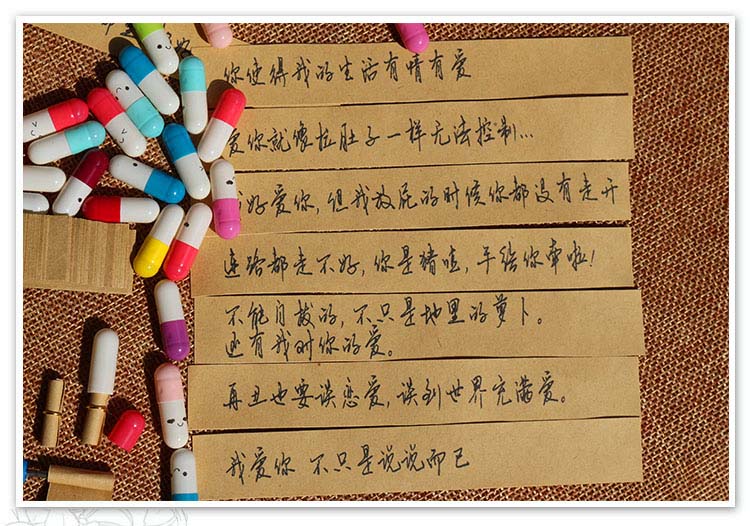 你使得我的生活有情有爱
爱你就像拉肚子一样无法控制...
好爱你，但我放屁的时候你都没有走开
连路都走不好，你是猪哇，手给你牵啦！
不能自拔的，不只是地里的萝卜。
还有我对你的爱。
再丑也要谈恋爱，谈到世界充满爱。
我爱你 不只是说说而已